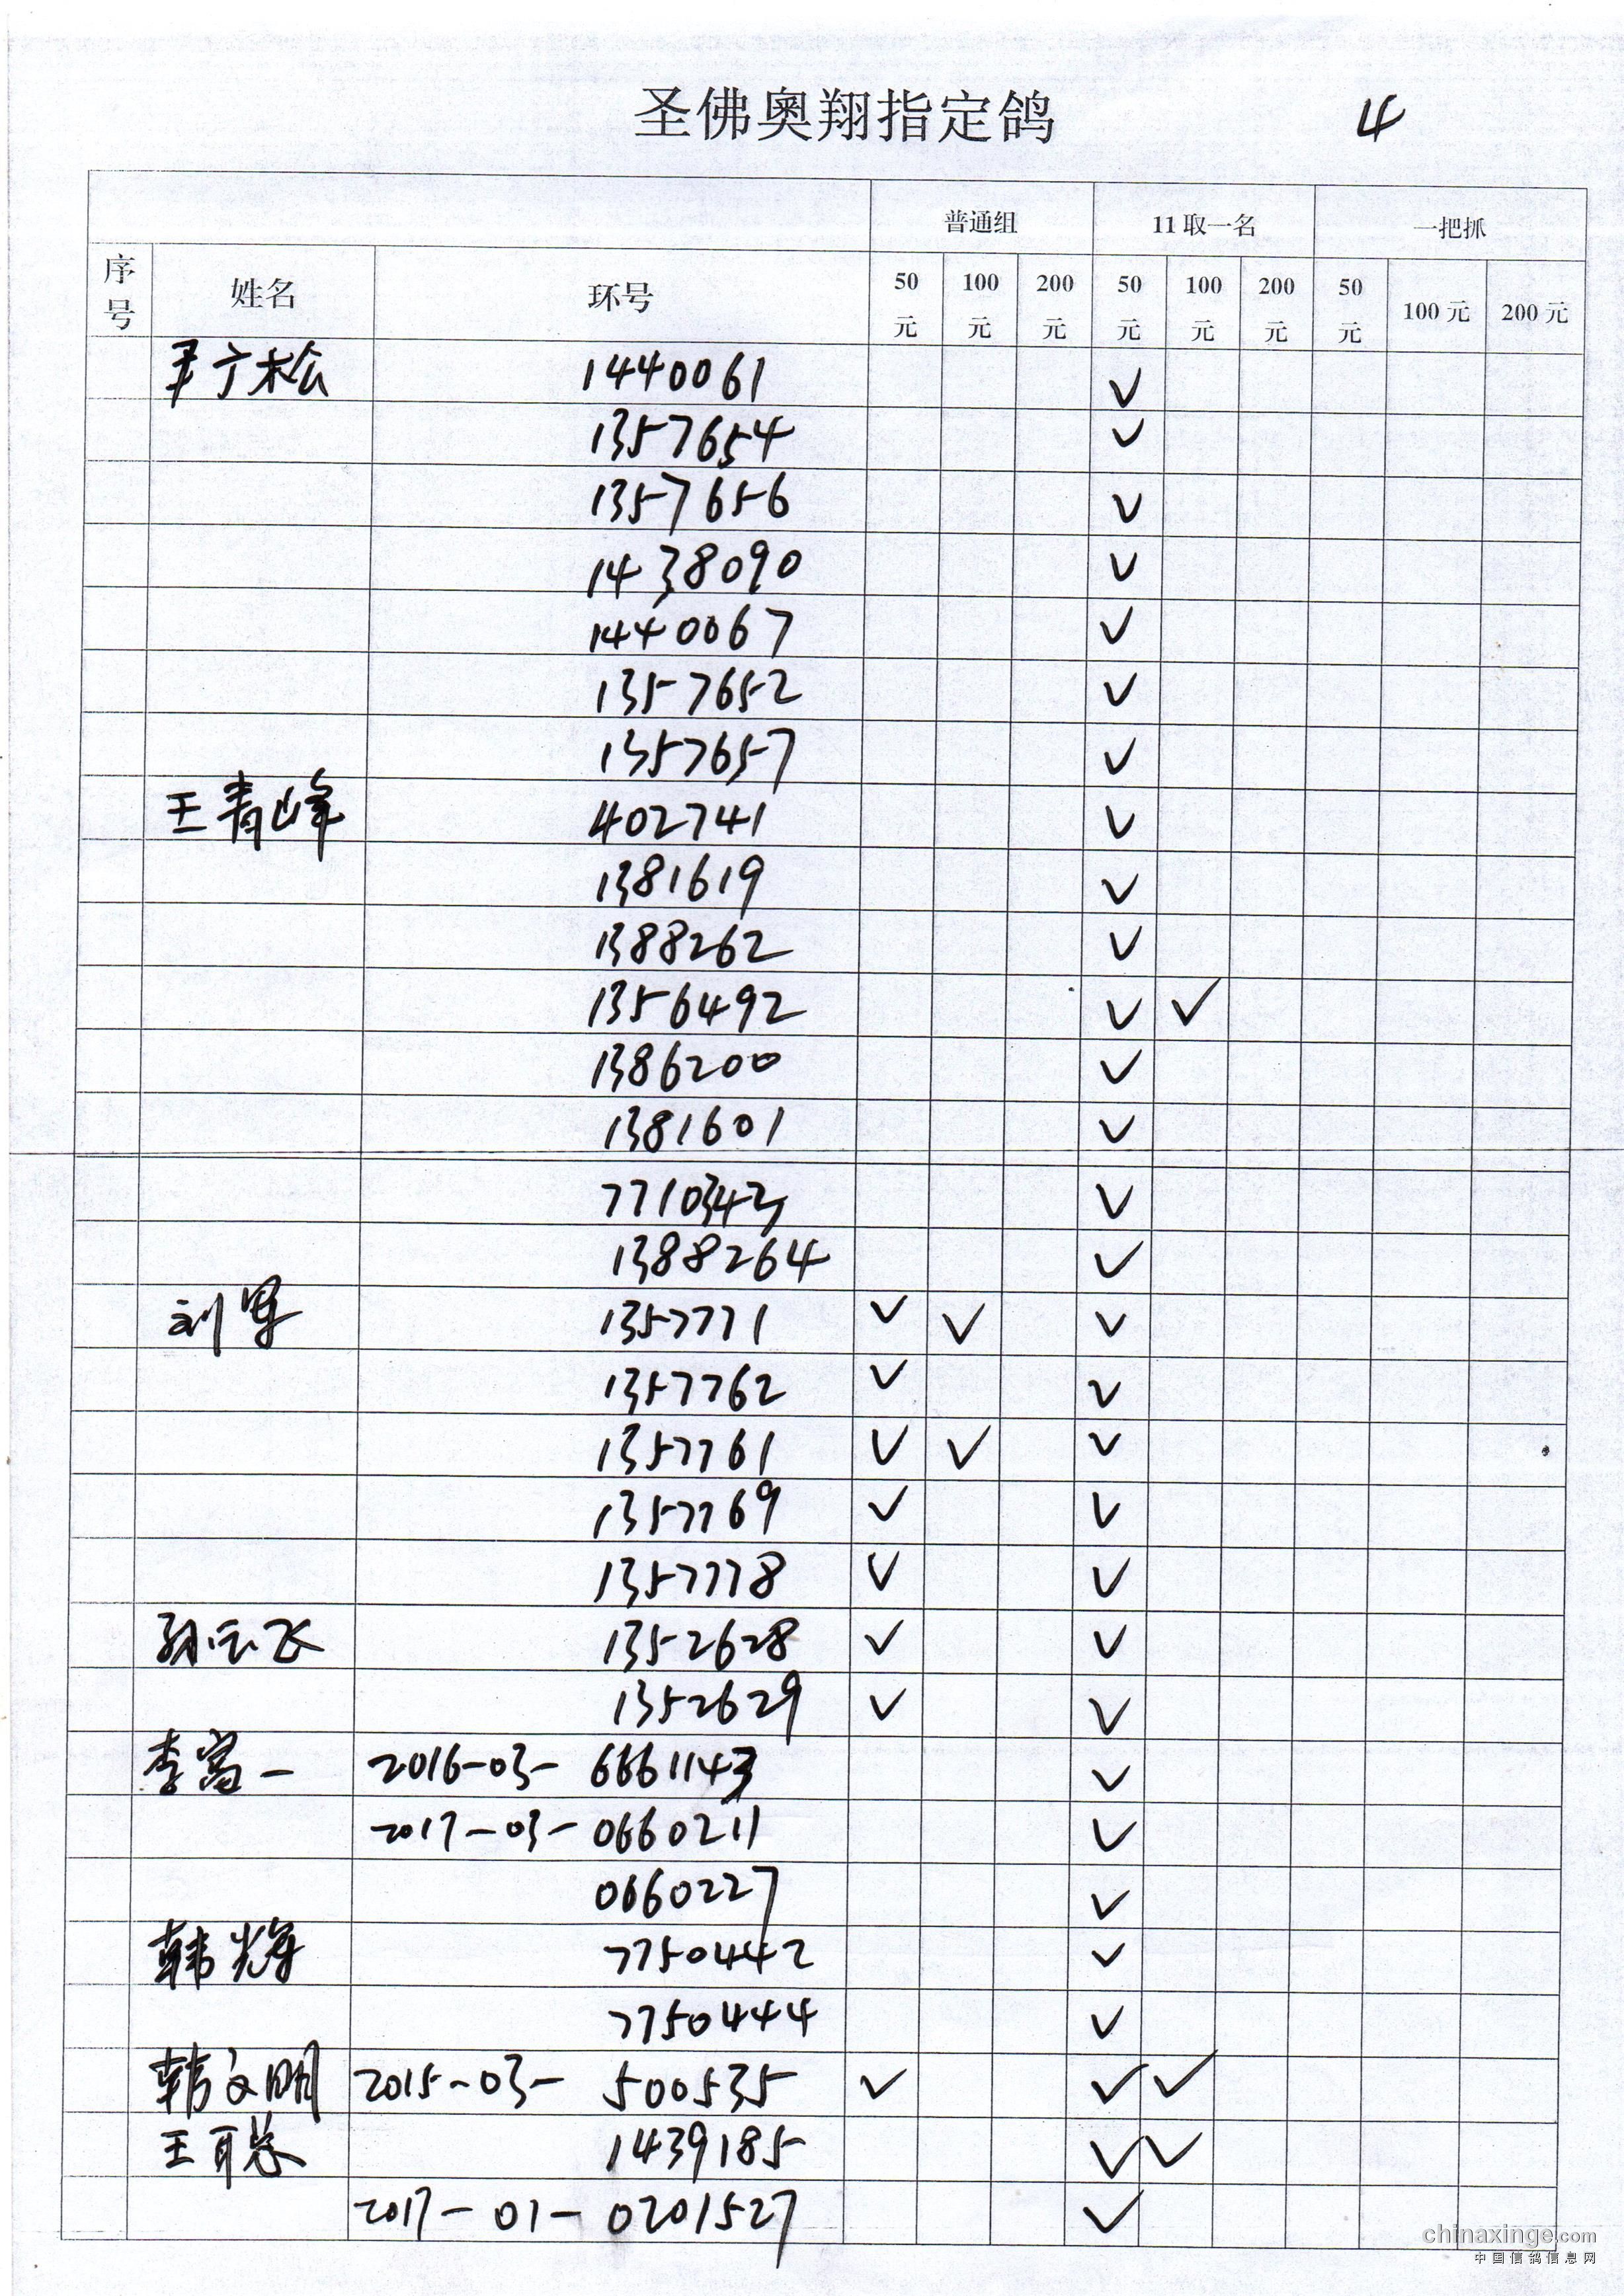 圣佛奥翔指定鸽 4
普通组 11取一名 一把抓
序号 姓名 环号 50元 100元 200元 50元 100元 200元 50元 100元 200元
尹广松 1440061 ✓
1357654 ✓
1357656 ✓
1438090 ✓
1440067 ✓
1357652 ✓
1357657 ✓
王青峰 402741 ✓
1381619 ✓
1388262 ✓
1356492 ✓ ✓
1386200 ✓
1381601 ✓
7710343 ✓
1388264 ✓
刘军 1357771 ✓ ✓ ✓
1357762 ✓ ✓
1357761 ✓ ✓ ✓
1357769 ✓ ✓
1357778 ✓ ✓
孙云飞 1352628 ✓ ✓
1352629 ✓ ✓
李富一 2016-03-6661143 ✓
2017-03-0660211 ✓
0660227 ✓
韩光辉 7750442 ✓
7750444 ✓
韩文明 2015-03-500535 ✓ ✓ ✓
王聪 1439185 ✓ ✓
2017-01-0201527 ✓
chinaxinge.com
中国信鸽信息网